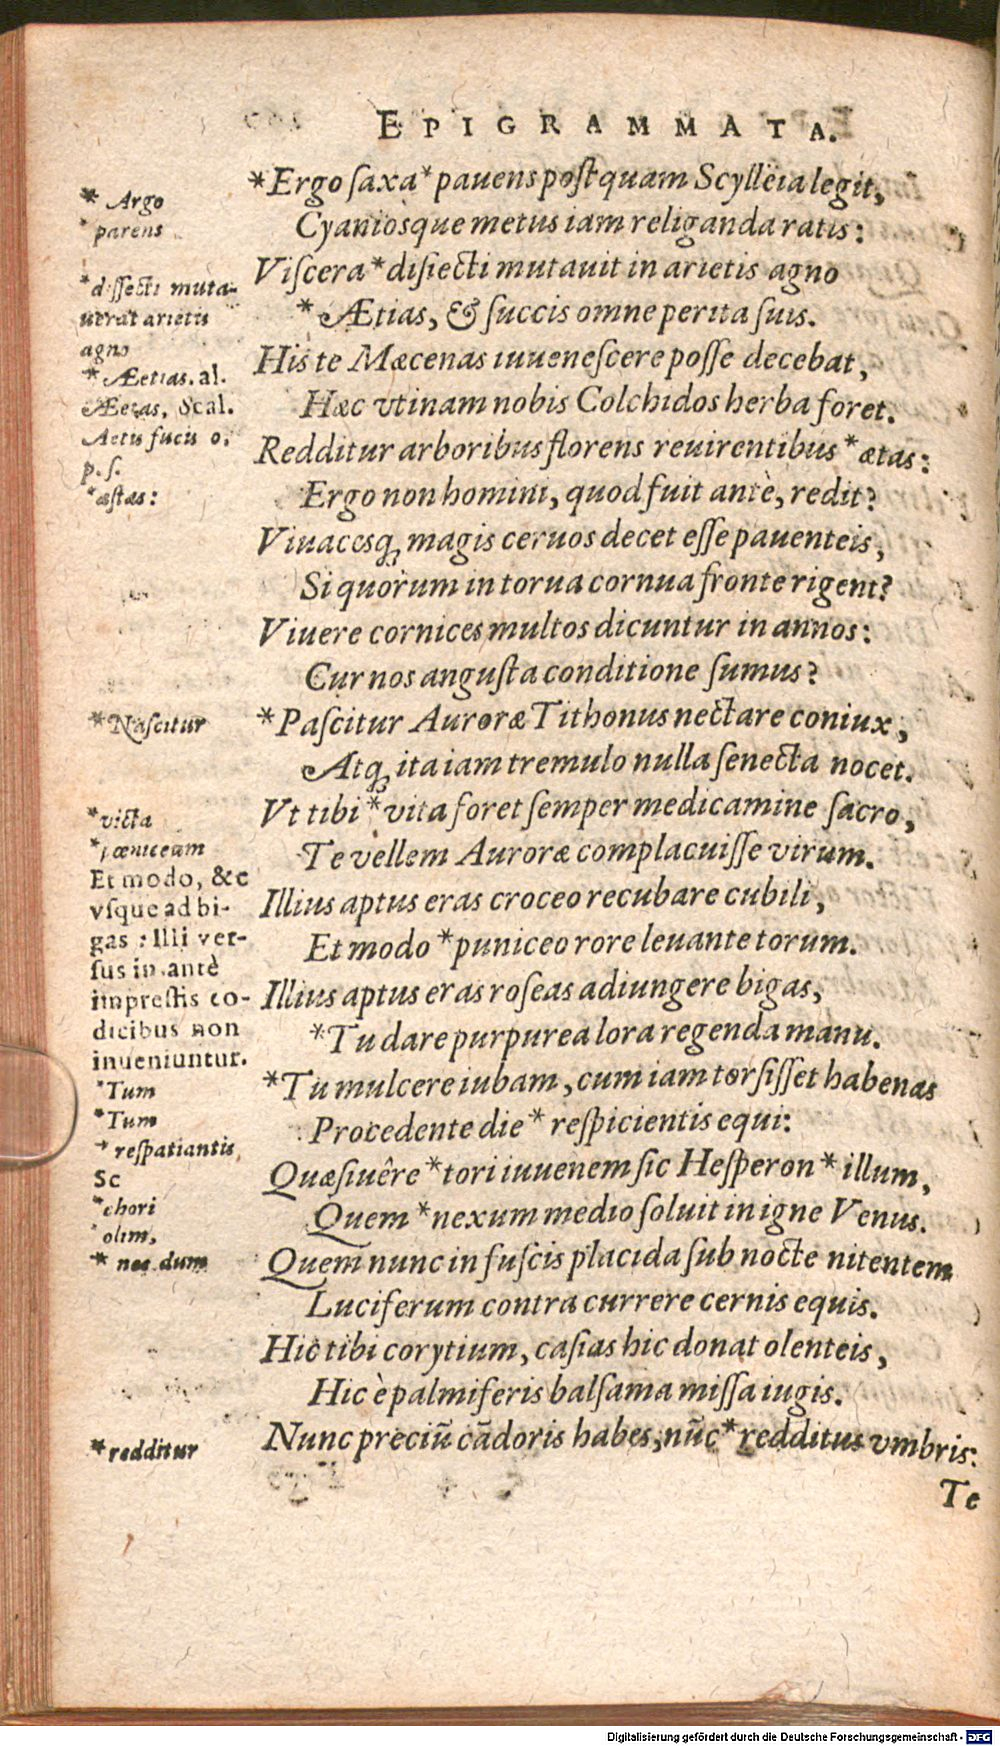 EPIGRAMMATA.
*Ergo saxa* pauens postquam Scyllëia legit,
Cyaniosque metus iam religanda ratis:
Viscera* disiecti mutauit in arietis agno
*Ætias, & succis omne perita suis.
His te Mæcenas iuuenescere posse decebat,
Hæc vtinam nobis Colchidos herba foret.
Redditur arboribus florens reuirentibus *ætas:
Ergo non homini, quod fuit antè, redit?
Viuacesq; magis ceruos decet esse pauenteis,
Si quorum in torua cornua fronte rigent?
Viuere cornices multos dicuntur in annos:
Cur nos angusta conditione sumus?
*Pascitur Auroræ Tithonus nectare coniux,
Atq; ita iam tremulo nulla senecta nocet.
Vt tibi *vita foret semper medicamine sacro,
Te vellem Auroræ complacuisse virum.
Illius aptus eras croceo recubare cubili,
Et modo *puniceo rore leuante torum.
Illius aptus eras roseas adiungere bigas,
*Tu dare purpurea lora regenda manu.
*Tu mulcere iubam, cum iam torsisset habenas
Procedente die* respicientis equi:
Quæsiuêre *tori iuuenem sic Hesperon* illum,
Quem *nexum medio soluit in igne Venus.
Quem nunc in fuscis placida sub nocte nitentem
Luciferum contra currere cernis equis.
Hic tibi corytium, casias hic donat olenteis,
Hic è palmiferis balsama missa iugis.
Nunc preciũ cãdoris habes, nũc* redditus vmbris:
Te
* Argo
* parens
*dissecti muta-
uerat arietis
agno
*Æetias. al.
Æetas, Scal.
Aetis fucis o.
p. s.
*æstas:
*Nascitur
*victa
*pœniceam
Et modo, &c
vsque ad bi-
gas: Illi ver-
sus in antè
impressis co-
dicibus non
inueniuntur.
*Tum
*Tum
* respatiantis
Sc
*chori
olim,
* nec dum
*redditur
Digitalisierung gefördert durch die Deutsche Forschungsgemeinschaft - DFG